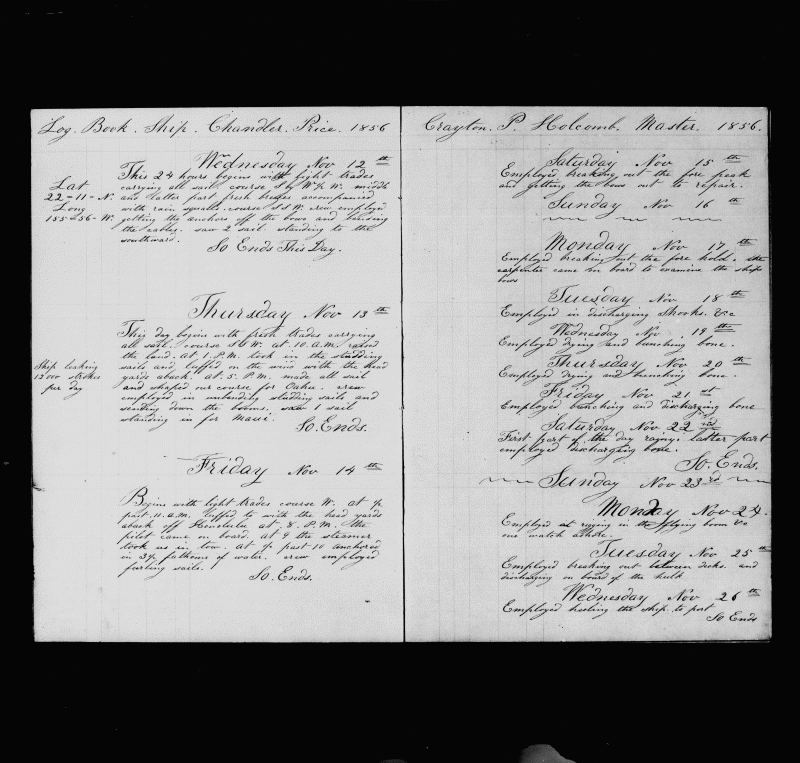 Log. Book. Ship. Chandler. Price. 1856
Wednesday Nov 12th
Lat
22-11-N.
Long
155-56-W.
This 24 hours begins with light trades
carrying all sail. course S by W ½ W. middle
and latter part fresh breezes accompanied
with rain squalls. course S S W. crew employed
getting the anchors off the bows and bending
the cables. saw 2 sail standing to the
southward.
So Ends This Day.
Thursday Nov 13th
Ship leaking
12000 strokes
per day
This day begins with fresh trades carrying
all sail. course S W. at. 10. A.M. raised
the land. at. 1. P.M. took in the studding
sails and luffed on the wind with the head
yards aback. at. 5. P.M. made all sail
and shaped our course for Oahu. crew
employed in unbending studding sails and
sending down the booms. saw 1 sail
standing in for Maui.
So. Ends.
Friday Nov 14th
Begins with light trades course W. at ½
past. 11. A.M. luffed to with the head yards
aback off Honolulu at. 8. P.M. the
pilot came on board. at 9 the steamer
took us in tow. at ½ past 10 anchored
in 3½ fathoms of water. crew employed
furling sails.
So. Ends.
Crayton. P. Holcomb. Master. 1856.
Saturday Nov 15th
Employed breaking out the fore peak
and getting the bows out to repair.
Sunday Nov 16th
Monday Nov 17th
Employed breaking out the fore hold. the
carpenter came on board to examine the ships
bows
Tuesday Nov 18th
Employed in discharging shooks. &c
Wednesday Nov 19th
Employed drying and bunching bone.
Thursday Nov 20th
Employed drying and bunching bone
Friday Nov 21st
Employed bunching and discharging bone
Saturday Nov 22nd
First part of the day rainy. latter part
employed discharging bone.
So. Ends.
Sunday Nov 23rd
Monday Nov 24.
Employed at rigging in the flying boom &c
one watch ashore.
Tuesday Nov 25th
Employed breaking out between decks. and
discharging on board of the hulk
Wednesday Nov 26th
Employed heeling the ship to port
So Ends